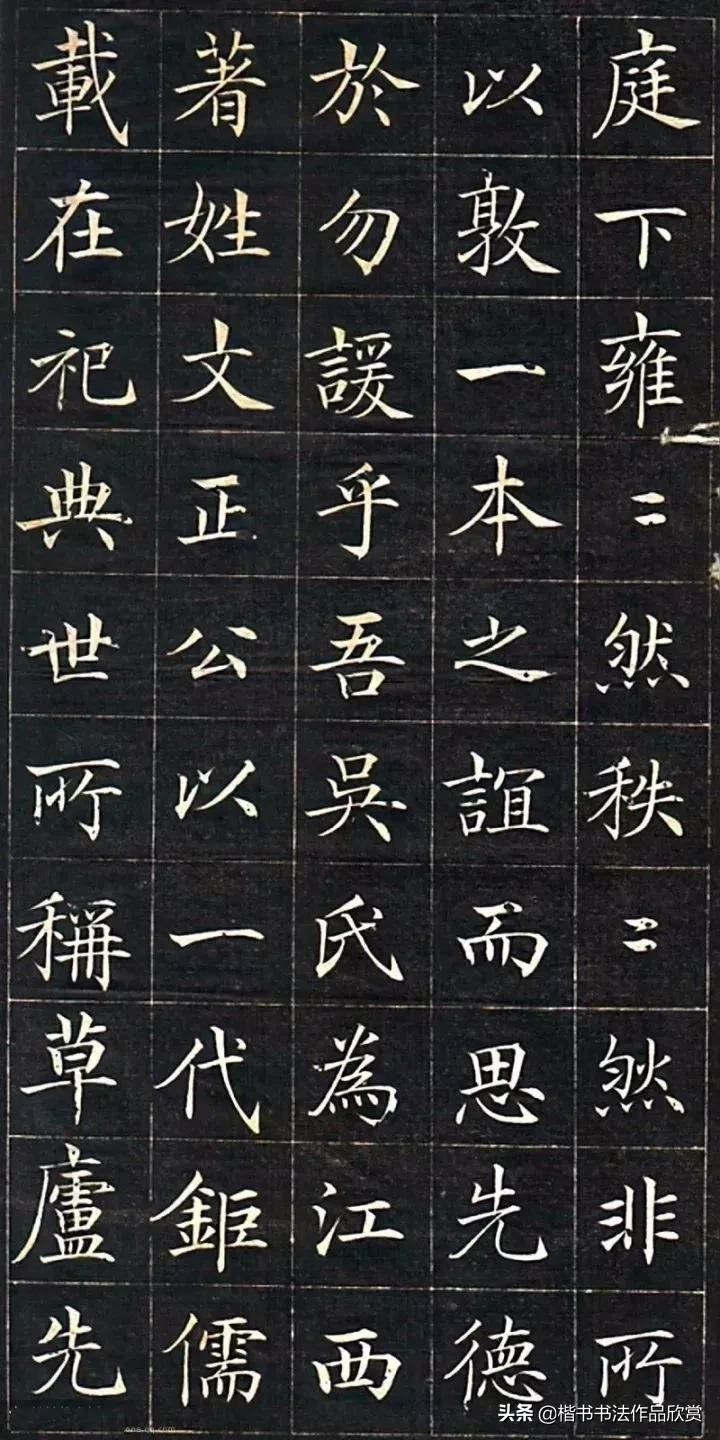 庭下雍〻然秩〻然非所
以敦一本之誼而思先德
於勿諼乎吾吳氏為江西
著姓文正公以一代鉅儒
載在祀典世所稱草廬先
头条 @楷书书法作品欣赏